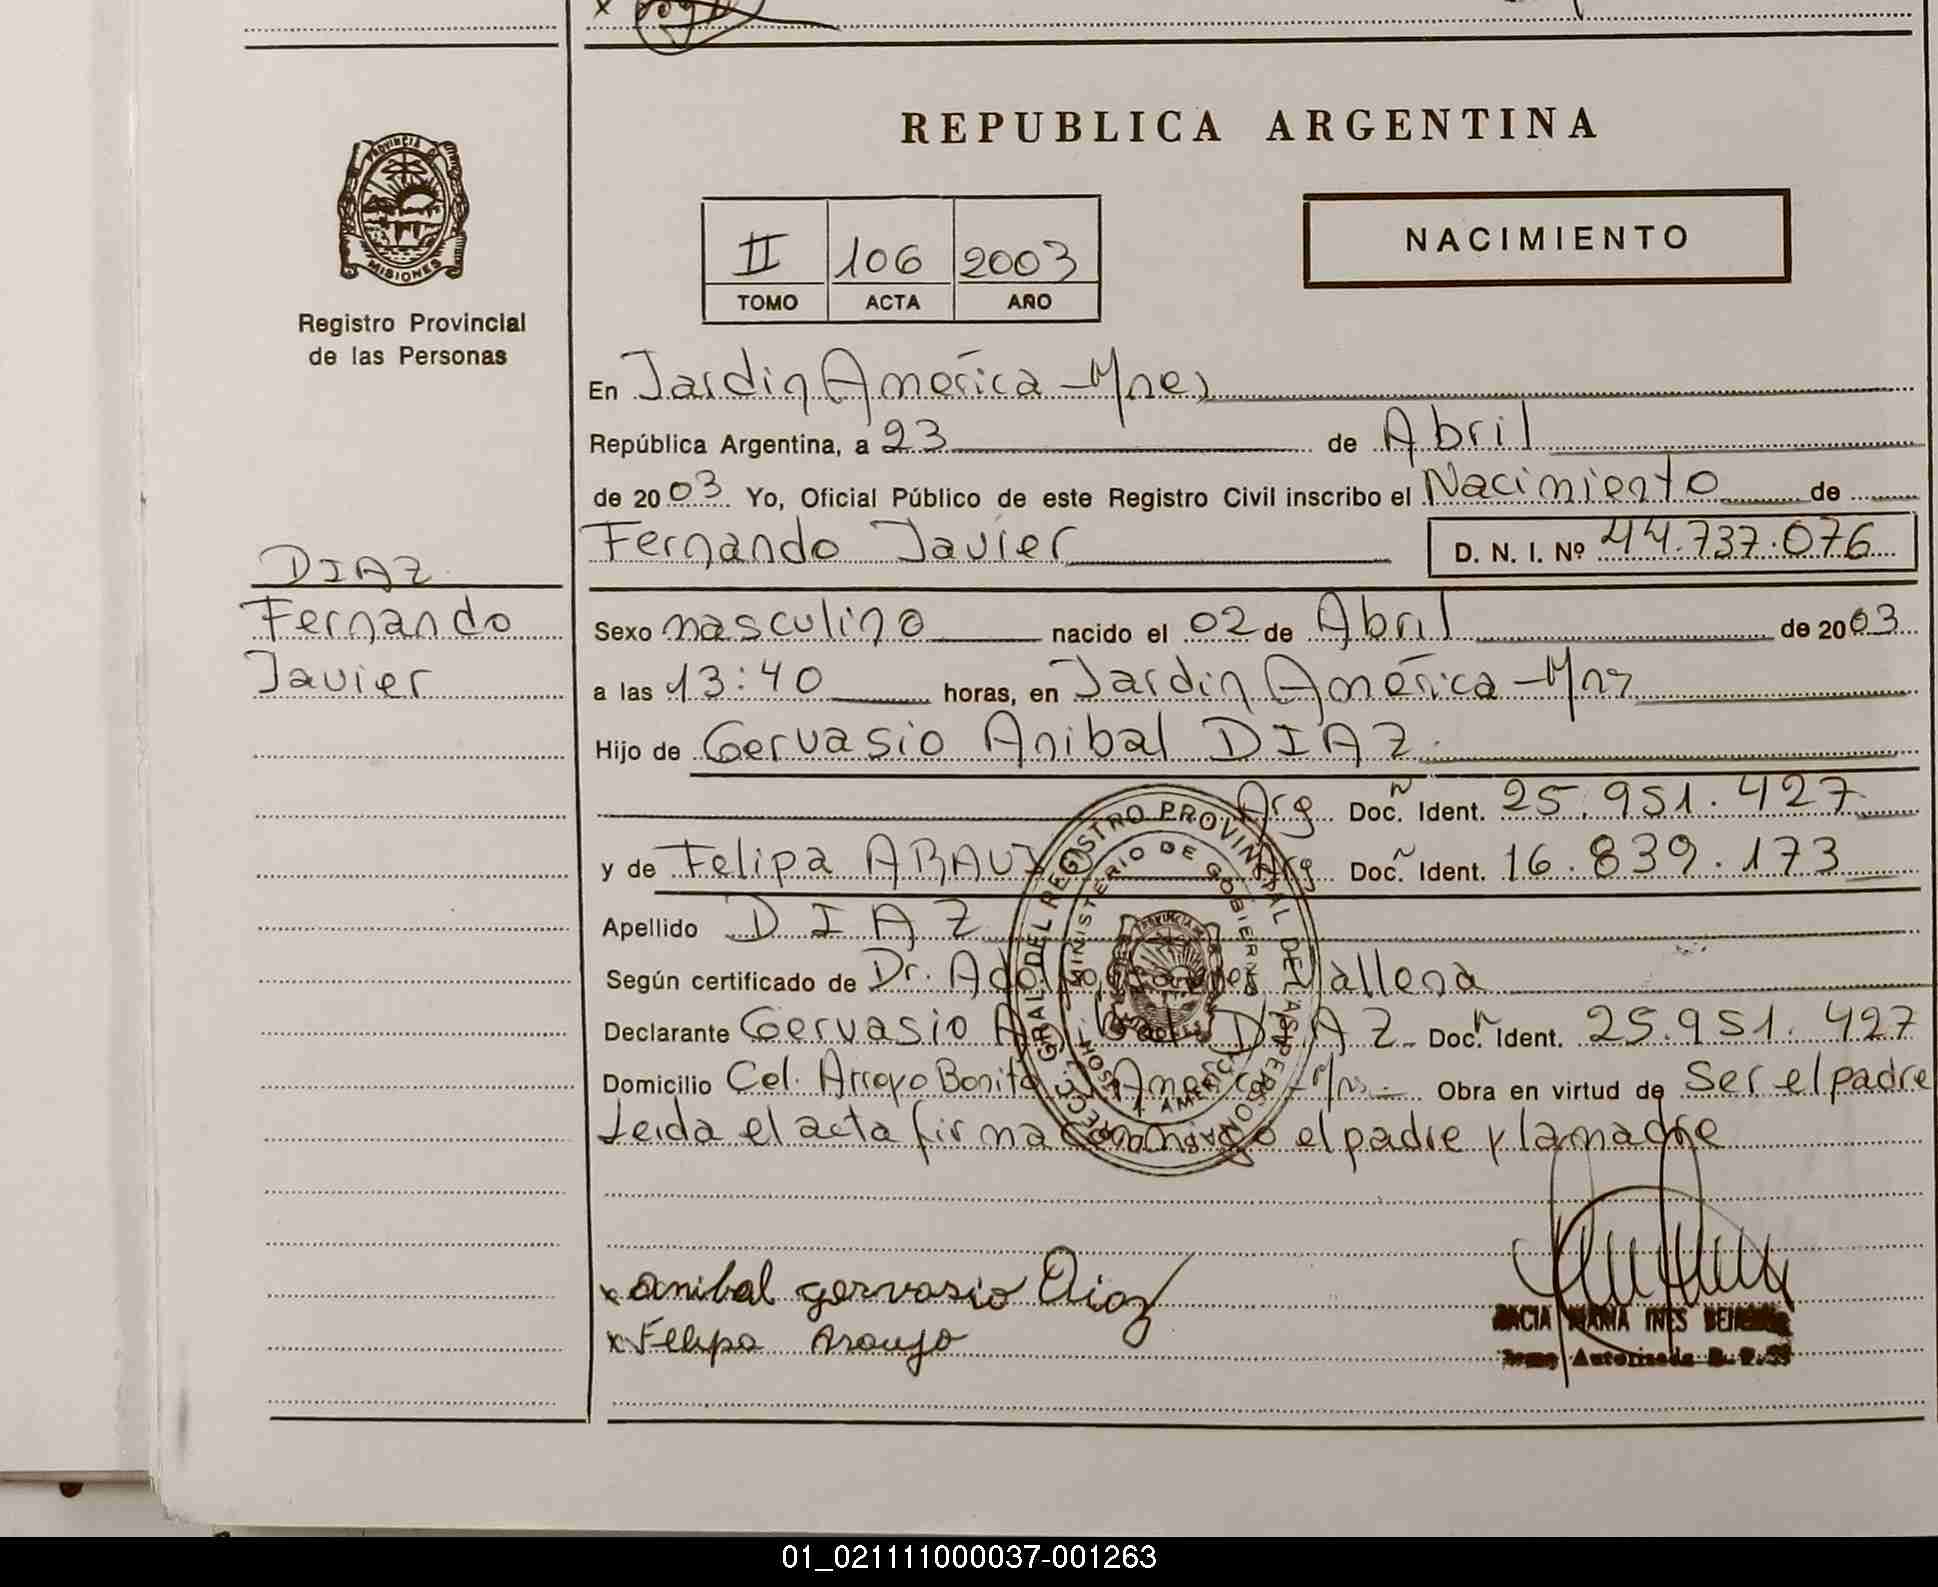 REPUBLICA ARGENTINA
PROVINCIA DE
MISIONES
Registro Provincial
de las Personas
II 106 2003
TOMO ACTA AÑO
NACIMIENTO
En Jardin América - Mnes
República Argentina, a 23 de Abril
de 2003 Yo, Oficial Público de este Registro Civil inscribo el Nacimiento de
Fernando Javier D. N. I. Nº 44.737.076
DIAZ
Fernando
Javier
Sexo masculino nacido el 02 de Abril de 2003
a las 13:40 horas, en Jardin América - Mns
Hijo de Gervasio Anibal DIAZ
Arg Doc. Ident. 25.951.427
y de Felipa ARAUJO Arg Doc. Ident. 16.839.173
Apellido DIAZ
Según certificado de Dr. Adolfo Vallena
Declarante Gervasio Anibal DIAZ Doc. Ident. 25.951.427
Domicilio Col. Arroyo Bonito J. América - Mns. Obra en virtud de Ser el padre
Leida el acta firma conmigo el padre y la madre
DIRECC. GRAL. DEL REGISTRO PROVINCIAL DE LAS PERSONAS
MINISTERIO DE GOBIERNO
x anibal gervasio Diaz
x Felipa Araujo
MARIA INES
Autorizada
01_021111000037-001263